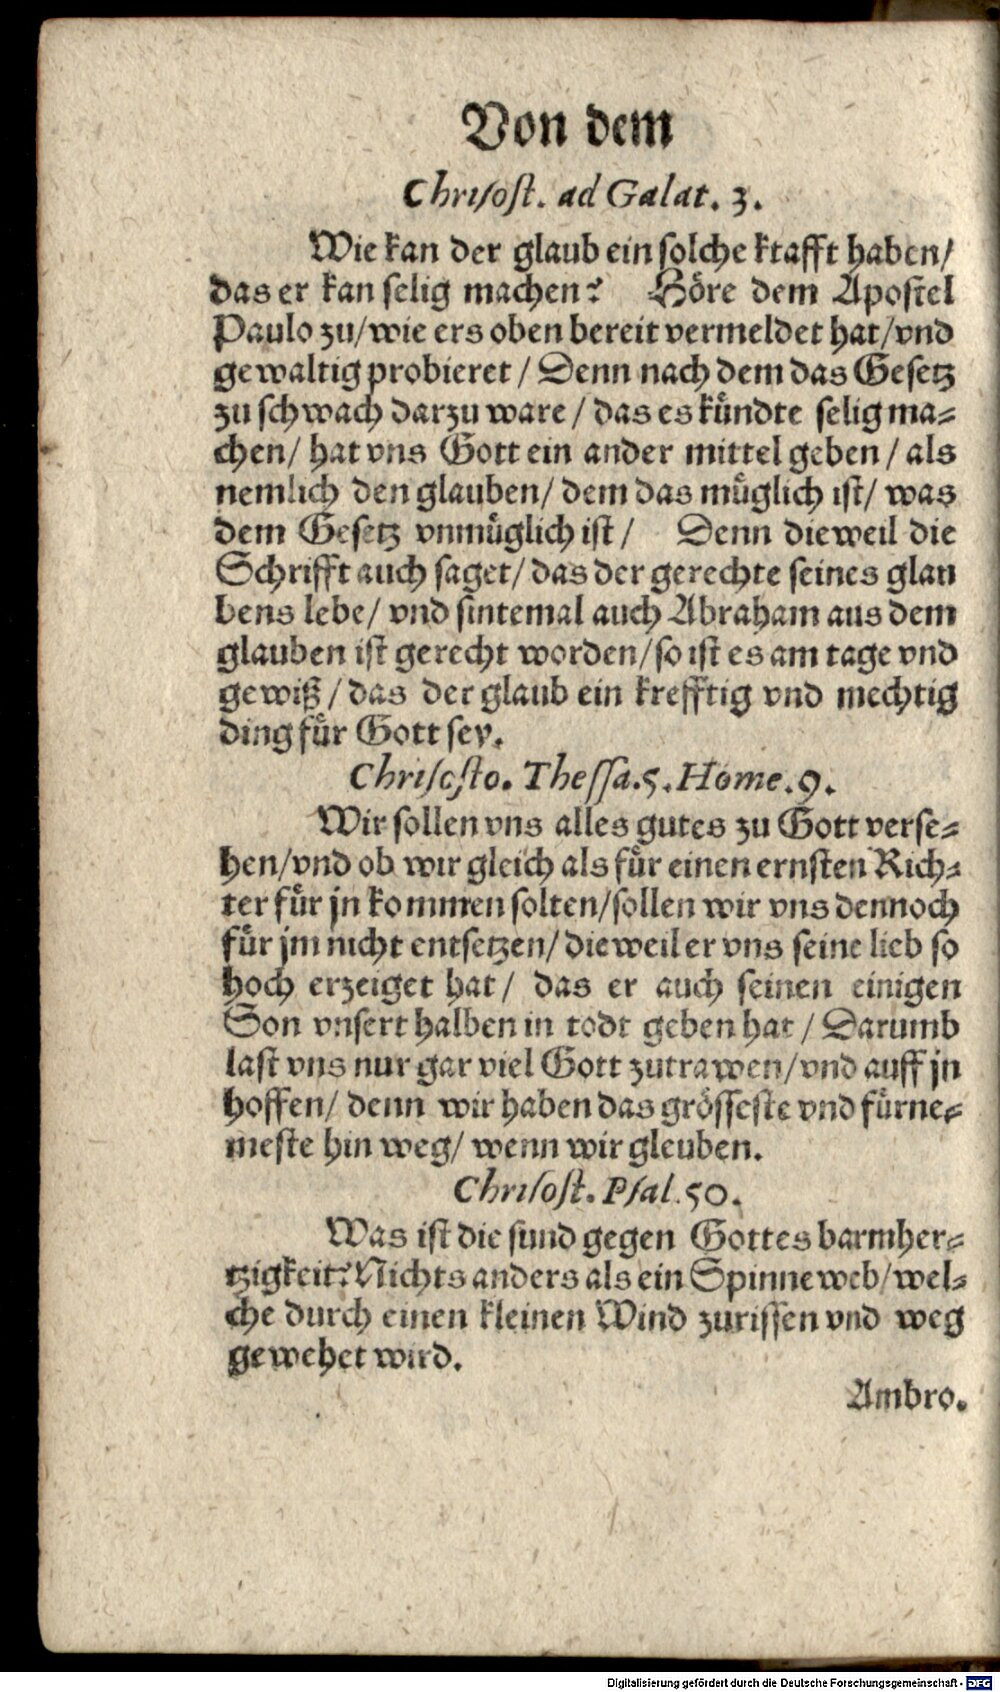 Von dem
Chrisost. ad Galat. 3.
Wie kan der glaub ein solche krafft haben/
das er kan selig machen? Höre dem Apostel
Paulo zu/wie ers oben bereit vermeldet hat/vnd
gewaltig probieret/ Denn nach dem das Gesetz
zu schwach darzu ware/ das es kündte selig ma-
chen/ hat vns Gott ein ander mittel geben/ als
nemlich den glauben/ dem das müglich ist/ was
dem Gesetz vnmüglich ist/ Denn dieweil die
Schrifft auch saget/ das der gerechte seines glau
bens lebe/ vnd sintemal auch Abraham aus dem
glauben ist gerecht worden/so ist es am tage vnd
gewiß/ das der glaub ein krefftig vnd mechtig
ding für Gott sey.
Chrisosto. Thessa.5. Home.9.
Wir sollen vns alles gutes zu Gott verse-
hen/vnd ob wir gleich als für einen ernsten Rich-
ter für jn kommen solten/sollen wir vns dennoch
für jm nicht entsetzen/ dieweil er vns seine lieb so
hoch erzeiget hat/ das er auch seinen einigen
Son vnsert halben in todt geben hat/ Darumb
last vns nur gar viel Gott zutrawen/vnd auff jn
hoffen/ denn wir haben das grösseste vnd fürne-
meste hin weg/ wenn wir gleuben.
Chrisost. Psal.50.
Was ist die sund gegen Gottes barmher-
tzigkeit? Nichts anders als ein Spinneweb/wel-
che durch einen kleinen Wind zurissen vnd weg
gewehet wird.
Ambro.
Digitalisierung gefördert durch die Deutsche Forschungsgemeinschaft - DFG